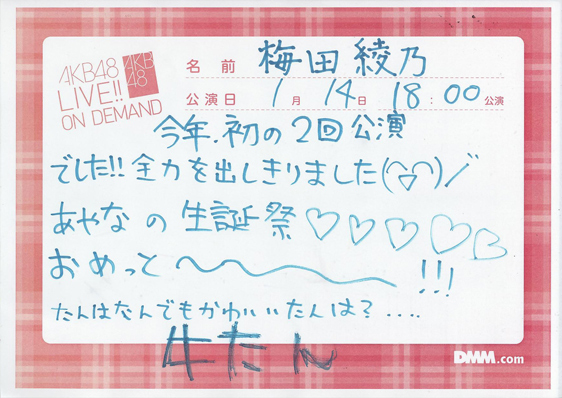 AKB48
LIVE!!
ON DEMAND
AKB
48
名前 梅田綾乃
公演日 1月14日 18:00公演
今年.初の2回公演
でした!!全力を出しきりました(^▽^)/
あやなの生誕祭♡♡♡♡♡
おめっと〜〜〜!!!
たんはたんでもかわいいたんは?....
牛たん
DMM.com